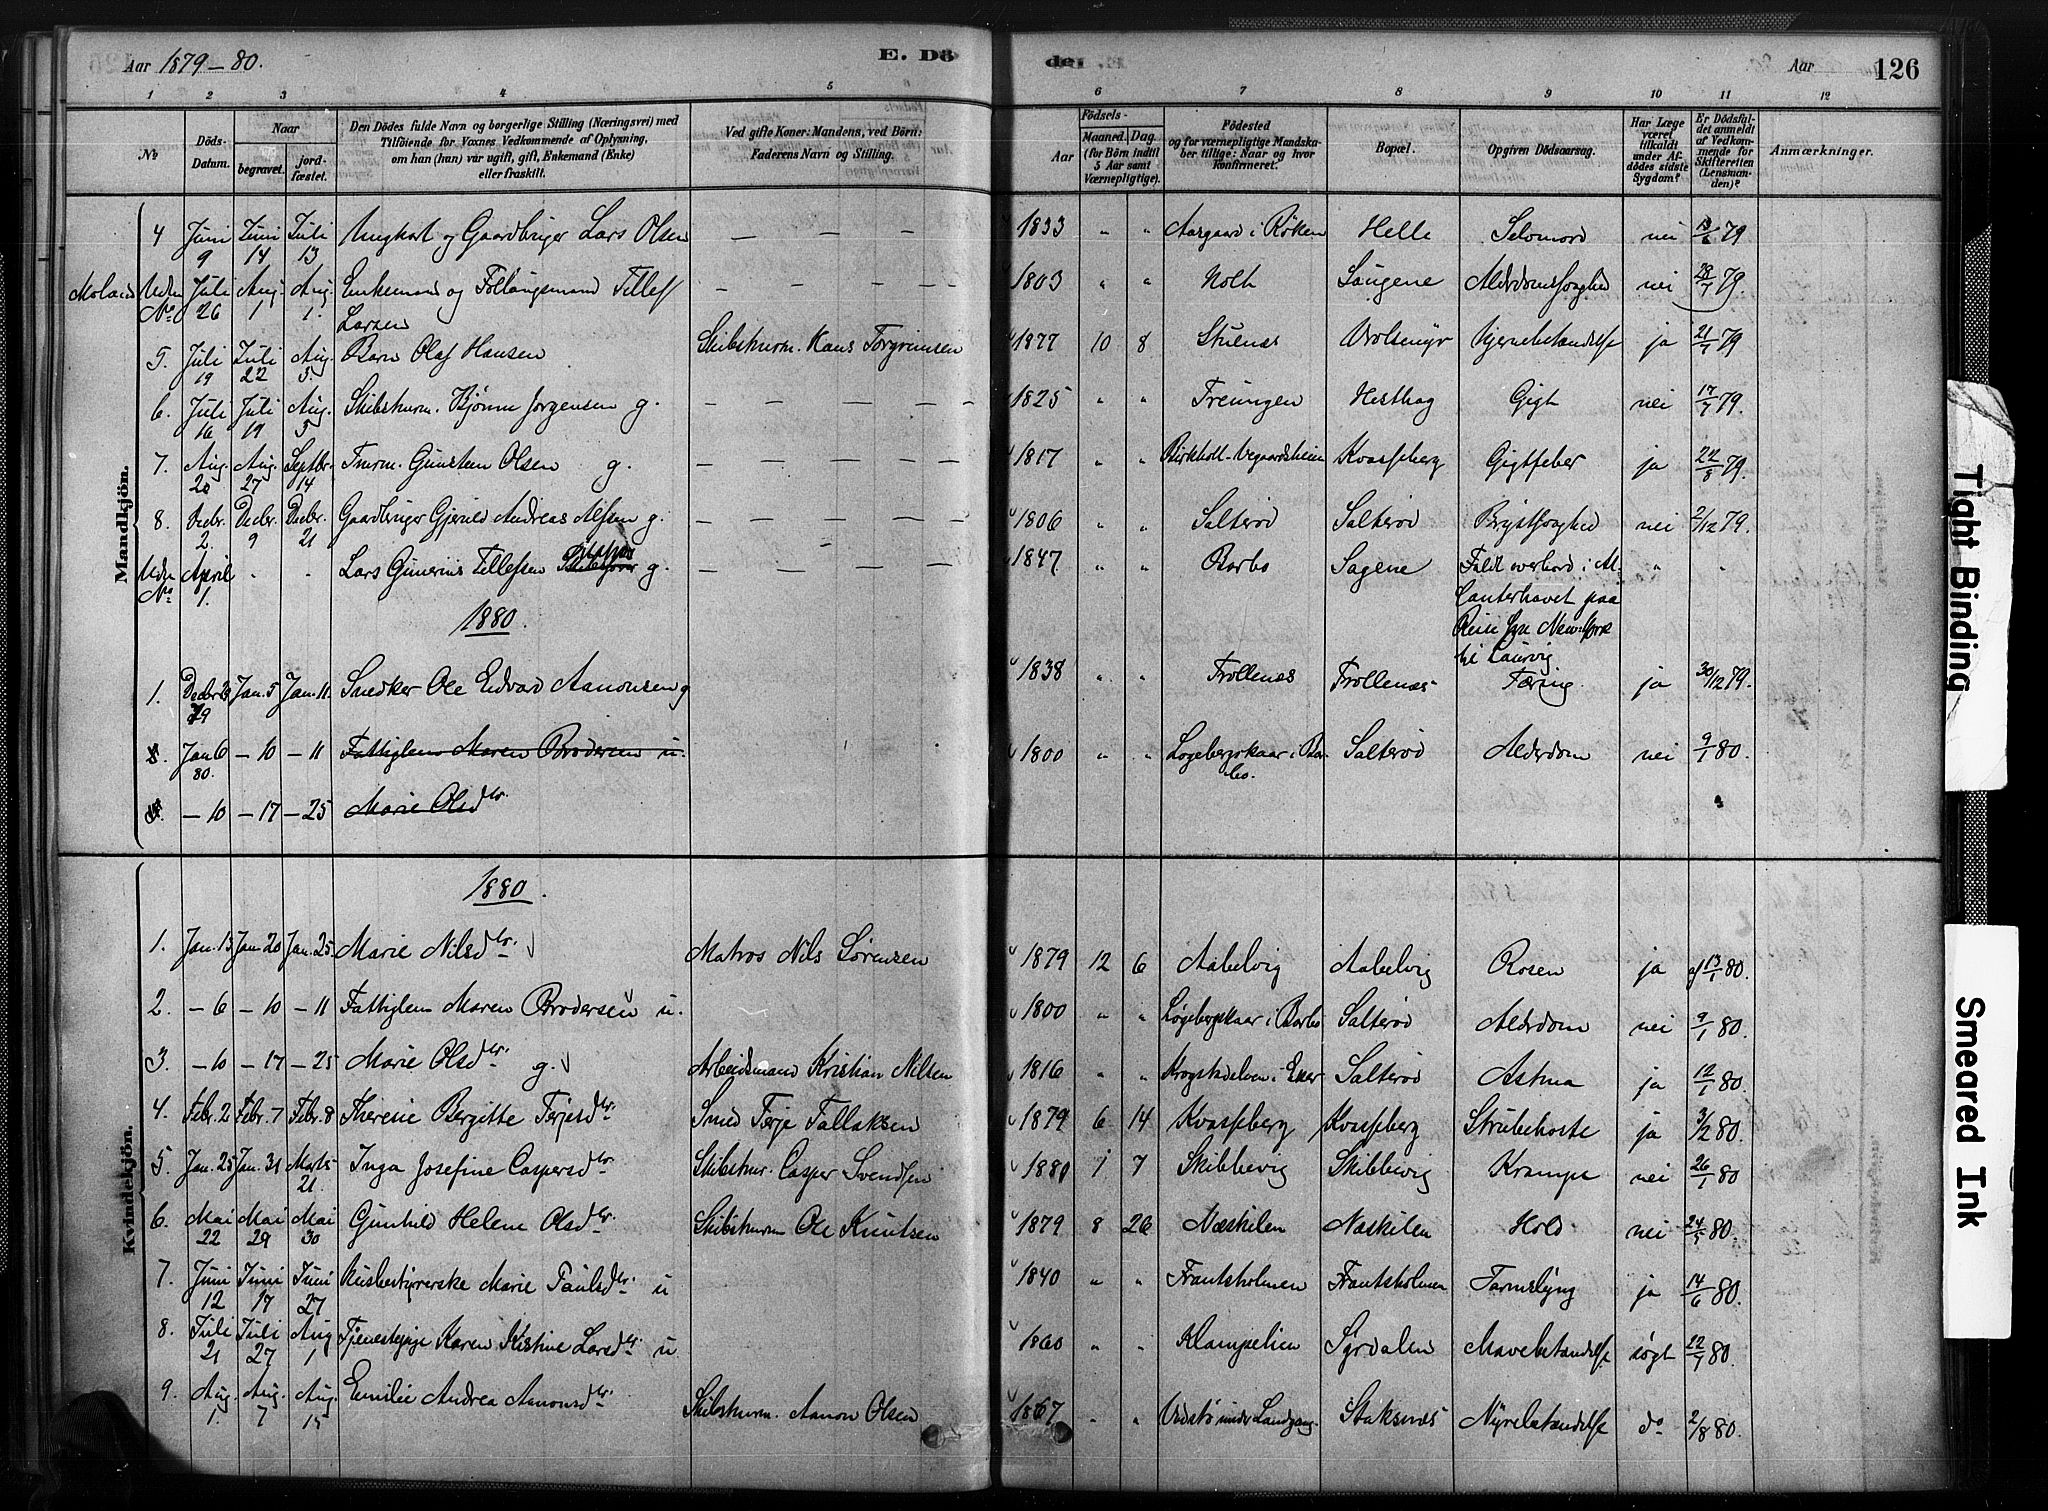 Aar 1879-80. E. Dö de. Aar 126
1 2 3 4 5 6 7 8 9 10 11 12
No. Döds-Datum. Naar begravet. jordfæstet. Den Dödes fulde Navn og borgerlige Stilling (Næringsvei) med Tilföiende for Voxnes Vedkommende af Oplysning, om han (hun) var ugift, gift, Enkemand (Enke) eller fraskilt. Ved gifte Koner: Mandens, ved Börn: Faderens Navn og Stilling. Födsels- Aar Maaned. Dag. (for Börn indtil 5 Aar samt Værnepligtige). Födested og for værnepligtige Mandskaber tillige: Naar og hvor konfirmeret. Bopæl. Opgiven Dödsaarsag. Har Læge været tilkaldt under Afdödes sidste Sygdom? Er Dödsfaldet anmeldt af Vedkommende for Skifteretten (Lensmanden)? Anmærkninger.
Mandkjön.
4 Juni 9 Juni 14 Juli 13 Ungkarl og Gaardbruger Lars Olsen — — — — 1833 " " Aasgaard i Røken Helle Selvmord nei 13/6 79
Moland Uden No. Juli 26 Aug. 1 Aug. 1. Enkemand og Føllaugsmand Tellef Larsen — — — — 1803 " " Holt Saugene Alderdomssvaghed nei 28/7 79
5. Juli 19 Juli 22 Aug. 3. Barn Olaf Hansen Skibstmrm. Hans Torgrimsen 1877 10 8 Stuenæs Hjernebetændelse ja 21/7 79
6. Juli 16 Juli 19 Aug. 3 Skibstmrm. Bjønn Jørgensen g. — — — — 1825 " " Treungen Hesthag Gigt nei 17/7 79.
7. Aug. 20 Aug. 27 Septbr. 14 Tmrm. Gunsten Olsen g. — — — — 1817 " " Birkholt Vegaardsheien Kvasseberg Gigtfeber ja 22/8 79
8. Decbr. 2. Decbr. 9 Decbr. 21 Gaardbruger Gjeruld Andreas Alfsen g. — — — — 1806 " " Salterød Salterød Brystsvaghed nei 2/12 79.
Uden No. April 1. " " Lars Gunerius Tellefsen g. — — — — 1847 " " Barbo Sagene Faldt overbord i Atlanterhavet paa Reise fra New-York til Laurvig " "
1880.
1. Decbr 29 79 Jan. 5 Jan. 11. Snedker Ole Edvard Aanonsen g 1838 " " Trollenæs Trollenæs Tæring ja 30/12 79.
Jan 6 80. — 10 — 11 Fattiglem Maren Brodersen u. 1800 " " Løgebergskaar i Barbo. Salterød Alderdom nei 9/1 80
— 10 — 17 — 25 Marie Olsdtr.
Kvindekjön.
1880.
1. Jan. 13 Jan. 20 Jan. 25 Marie Nilsdtr. Matros Nils Sørensen 1879 12 6 Aabelvig Aabelvig Rosen ja 13/1 80.
2. — 6 — 10 — 11 Fattiglem Maren Brodersen u. 1800 " " Løgebergskaar i Barbo Salterød Alderdom nei 9/1 80
3. — 10 — 17 — 25 Marie Olsdtr. g. Arbeidsmand Kristian Nilsen 1816 " " Krogstadelven i Eker Salterød Astma ja 12/1 80
4. Febr. 2 Febr. 7 Febr. 8 Therese Bergitte Terjesdtr. Smed Terje Tallaksen 1879 6 14 Kvasseberg Kvasseberg Strubehoste ja 3/2 80.
5. Jan. 25 Jan. 31 Marts 21. Inga Josefine Caspersdtr. Skibstmr. Casper Svendsen 1880 1 7 Skibbevig Skibbevig Krampe nei 26/1 80
6. Mai 22 Mai 29 Mai 30 Gunhild Helene Olsdtr. Skibstmrm Ole Knutsen 1879 8 26 Næskilen Næskilen Hold nei 24/5 80.
7. Juni 12 Juni 17 Juni 27 Husbestyrerske Marie Paulsdtr. u 1840 " " Frantsholmen Frantsholmen Tarmslyng ja 14/6 80.
8. Juli 21 Juli 27 Aug 1 Tjenestepige Karen Kistine Larsdtr. u 1860 " " Klampelien Syrdalen Mavebetændelse søgt 22/7 80.
9. Aug. 1. Aug. 7 Aug. 15 Emilie Andrea Aanonsdtr. Skibstmrm. Aanon Olsen 1867 " " Vedstø under Landgang. Staksnæs Nyrebetændelse do 2/8 80.
Tight Binding
Smeared Ink